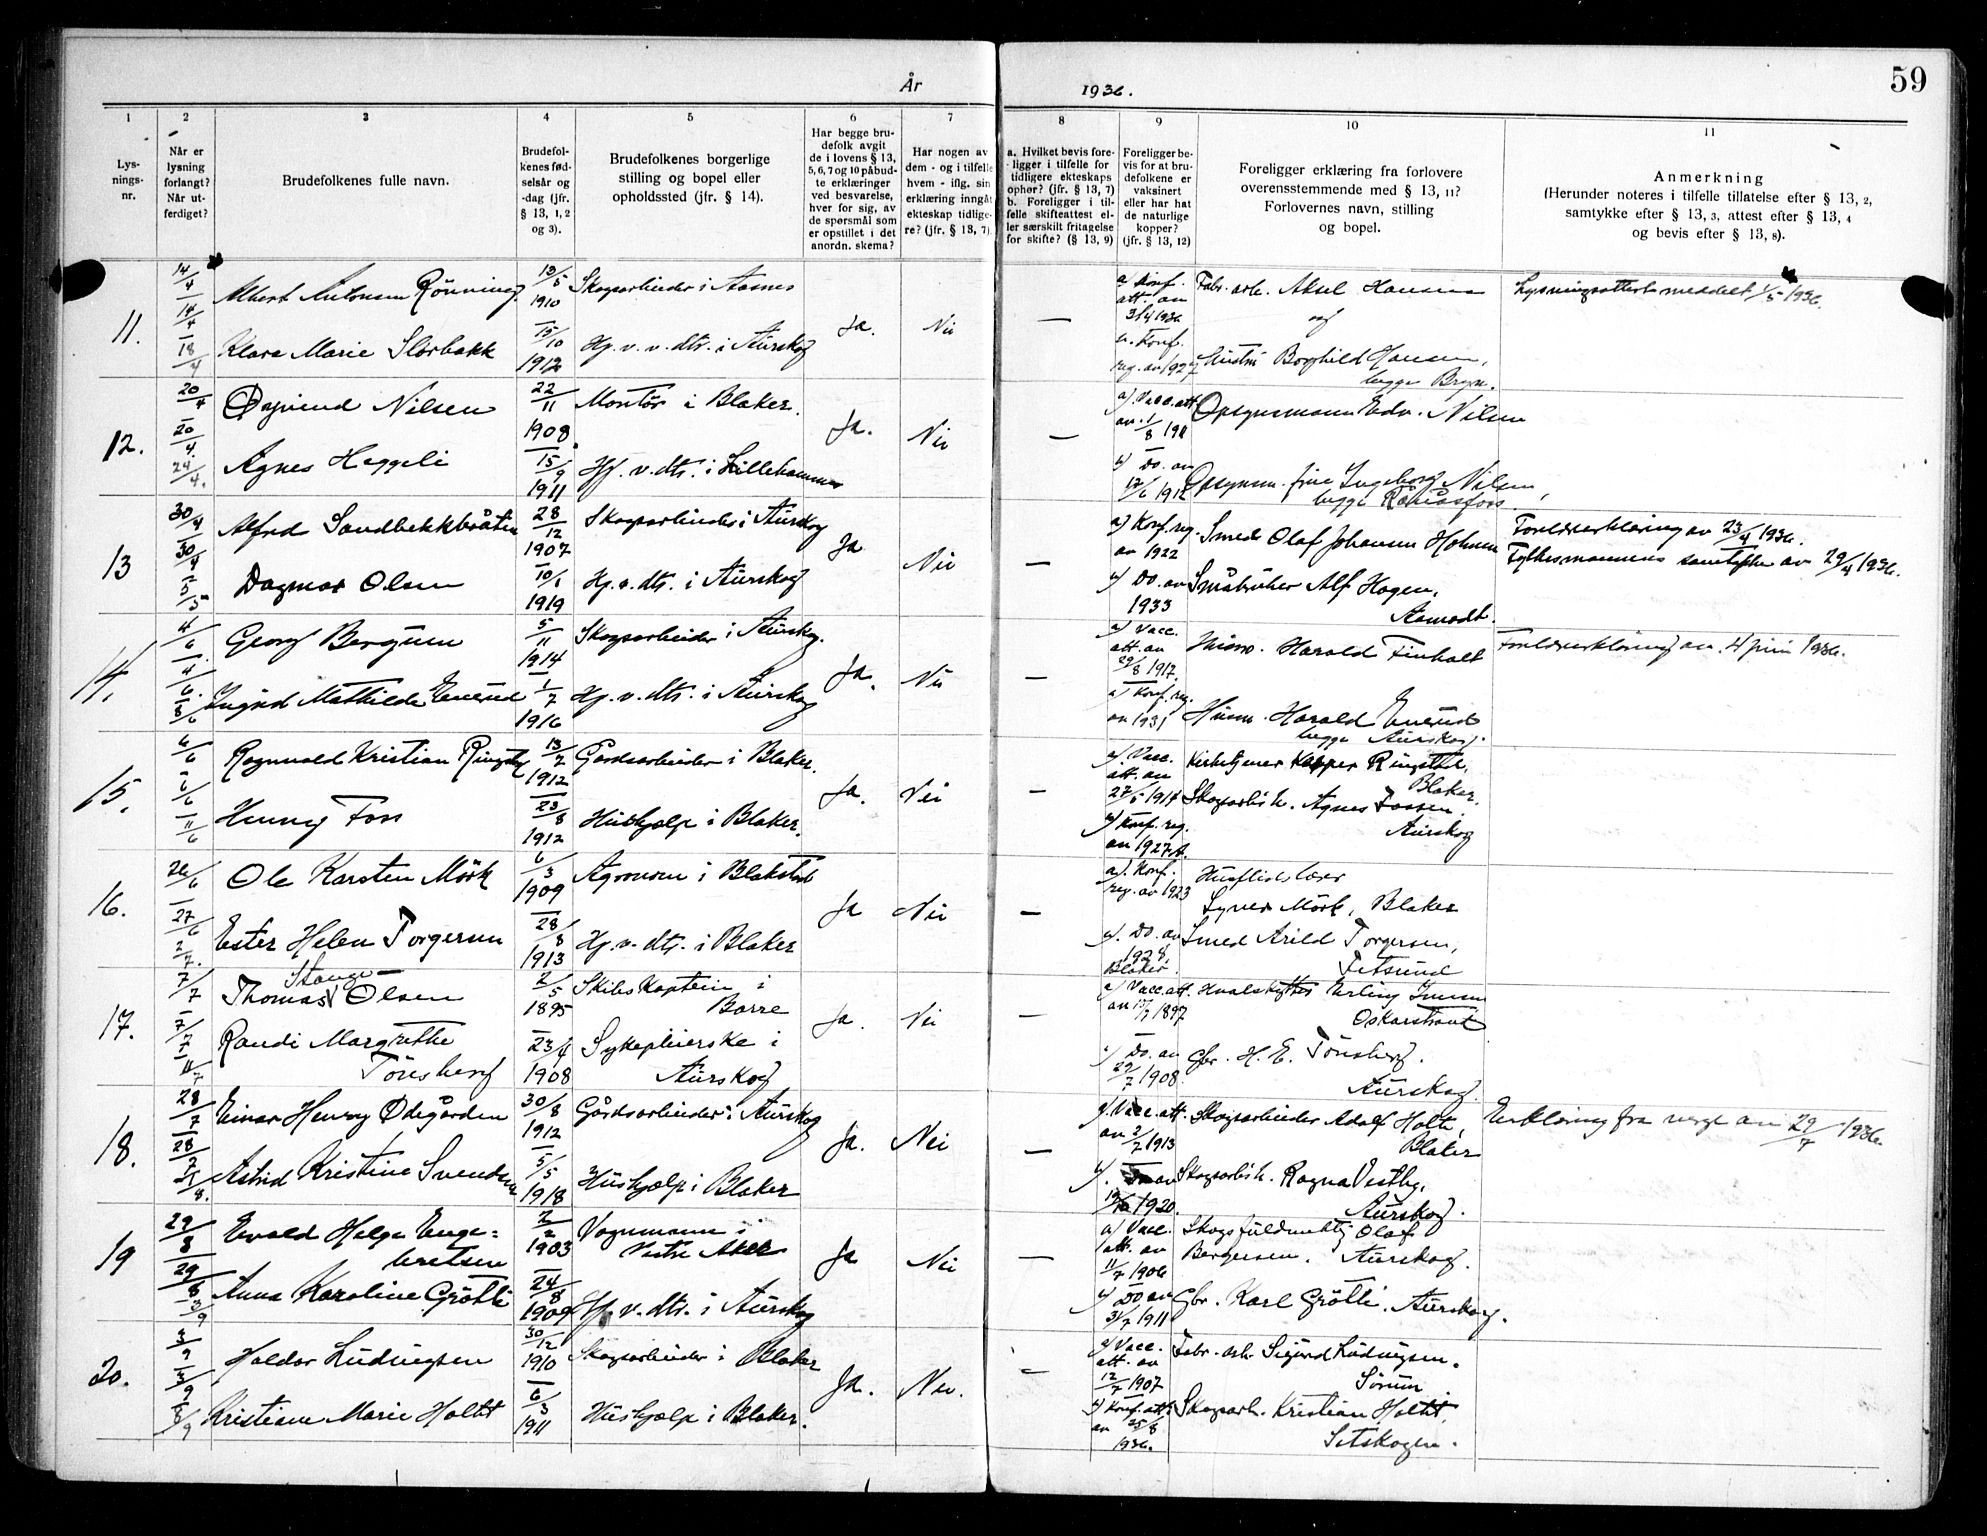 59
År 1936.
1 2 3 4 5 6 7 8 9 10 11
Lys-
nings-
nr.
Når er
lysning
forlangt?
Når ut-
ferdiget?
Brudefolkenes fulle navn.
Brudefol-
kenes fød-
selsår og
-dag (jfr.
§ 13, 1, 2
og 3).
Brudefolkenes borgerlige
stilling og bopel eller
opholdssted (jfr. § 14).
Har begge bru-
defolk avgit
de i lovens § 13,
5, 6, 7 og 10 påbud-
te erklæringer
ved besvarelse,
hver for sig, av
de spørsmål som
er opstillet i det
anordn. skema?
Har nogen av
dem - og i tilfelle
hvem - iflg. sin
erklæring inngåt
ekteskap tidlige-
re? (jfr. § 13, 7).
a. Hvilket bevis fore-
ligger i tilfelle for
tidligere ekteskaps
ophør? (jfr. § 13, 7)
b. Foreligger i til-
felle skifteattest el-
ler særskilt fritagelse
for skifte? (§ 13, 9)
Foreligger be-
vis for at bru-
defolkene er
vaksinert
eller har hat
de naturlige
kopper?
(jfr. § 13, 12)
Foreligger erklæring fra forlovere
overensstemmende med § 13, 11?
Forlovernes navn, stilling
og bopel.
Anmerkning
(Herunder noteres i tilfelle tillatelse efter § 13, 2,
samtykke efter § 13, 3, attest efter § 13, 4
og bevis efter § 13, 8).
11. 14/4 Albert Antonsen Rönning 13/5 1910 Skogsarbeider i Aasnes Ja. Nei — a) Konf. att. av 3/4 1936 Fabr. arb. Aksel Hansen Lysningsattest meddelt 1/5 1936.
14/4 og
18/4 Klara Marie Storbakk 15/10 1912 Hj. v. v. dtr. i Aurskog Konf. reg. av 1927 Borghild Hansen,
begge Bryn.
12. 20/4 Öyvind Nilsen 22/11 1908 Montör i Blaker. Ja. Nei — a) Vacc. att. av 1/8 1911 Opsynsmann Edv. Nilsen
20/4
24/4. Agnes Heggeli 15/9 1911 Hj. v. dtr. i Lillehammer b) Do. av 12/6 1912 Opsynsm. frue Ingeborg Nilsen,
begge Rånåsfoss
13 30/4 Alfred Sandbekkbråten 28/12 1907 Skogsarbeider i Aurskog Ja Nei — a) Konf. reg. av 1922 Smed Olaf Johansen Holmen Foreldreerklæring av 23/4 1936.
30/4 Fylkesmannens samtykke av 29/4 1936.
5/5 Dagmar Olsen 10/1 1919 Hj. v. dtr. i Aurskog b) Do. av 1933 Småbruker Alf Hagen,
Aamodt.
14. 4/6 Georg Bergum 5/11 1914 Skogsarbeider i Aurskog. Ja. Nei — a) Vacc. att. av 29/8 1917. Harald Finholt Foreldreerklæring av 4 juni 1936.
4/6.
8/6 Ingrid Mathilde Enerud 1/7 1916 Hj. v. dtr. i Aurskog Konf. reg. av 1931 Husm. Harald Enerud
begge Aurskog.
15. 6/6 Ragnvald Kristian Ringstad 13/2 1912 Gårdsarbeider i Blaker. Ja. Nei — a) Vacc. att. av 27/5 1914 Kirketjener Kasper Ringstad,
Blaker.
6/6
11/6 Henny Foss 23/8 1912 Hushjelp i Blaker. b) Konf. reg. av 1927. Skogsarb. h. Agnes Fossen
Aurskog
16. 26/6 Ole Karsten Mörk 6/3 1909 Agronom i Blakstad Ja Nei — a). Konf. reg. av 1923 Husflidslærer
Mörk, Blaker
27/6
2/7. Ester Helen Torgersen 28/8 1913 Hj. v. dtr. i Blaker b). Do. av 1928, Blaker. Smed Arild Torgersen,
Fetsund
17. 7/7 Thomas Stange Olsen 2/5 1895 Skibskaptein i
Borre Ja. Nei — a) Vacc. att. av 1897 Hvalskytter Erling
7/7
11/7 Randi Margrethe
Tönsberg 23/4 1908 Sykepleierske i
Aurskog b) Do. av 29/7 1908. Gbr. H. E. Tönsberg.
Aurskog.
18. 28/7 Einar Henry Ödegården 30/8 1912 Gårdsarbeider i Aurskog Ja. Nei — a) Vacc. att. av 2/7 1913 Skogsarbeider Adolf Holt,
Blaker Erklæring fra verge av 29/7 1936.
28/7
Astrid Kristine Svendsen 5/5 1918 Hushjelp i Blaker b). 1920. Skogsarb. h. Ragna Vestby,
Aurskog.
19 29/8 Evald Helge Enge=
bretsen 2/2 1903 Vognmann i
Vestre Aker Ja Nei — a) Vacc. att. av 11/7 1906 Skogsfuldmektig Olaf
Bergersen. Aurskog.
29/8
3/9 Anna Karoline Grötli 24/8 1909 Hj. v. dtr. i Aurskog b) Do av 31/7 1911 Gbr. Karl Grötli. Aurskog.
20. 3/9 Haldor Ludvigsen 30/12 1910 Skogsarbeider i Blaker Ja. Nei. — a) Vacc. att. av 12/7 1907 Fabr. arb. Sigurd Ludvigsen.
Sörum
3/9
8/9 Kristiane Marie Holtet 6/3 1911 Hushjelp i Blaker. b) Konf. att. av 25/8 1936. Skogsarb. Kristian Holtet,
Setskogen.